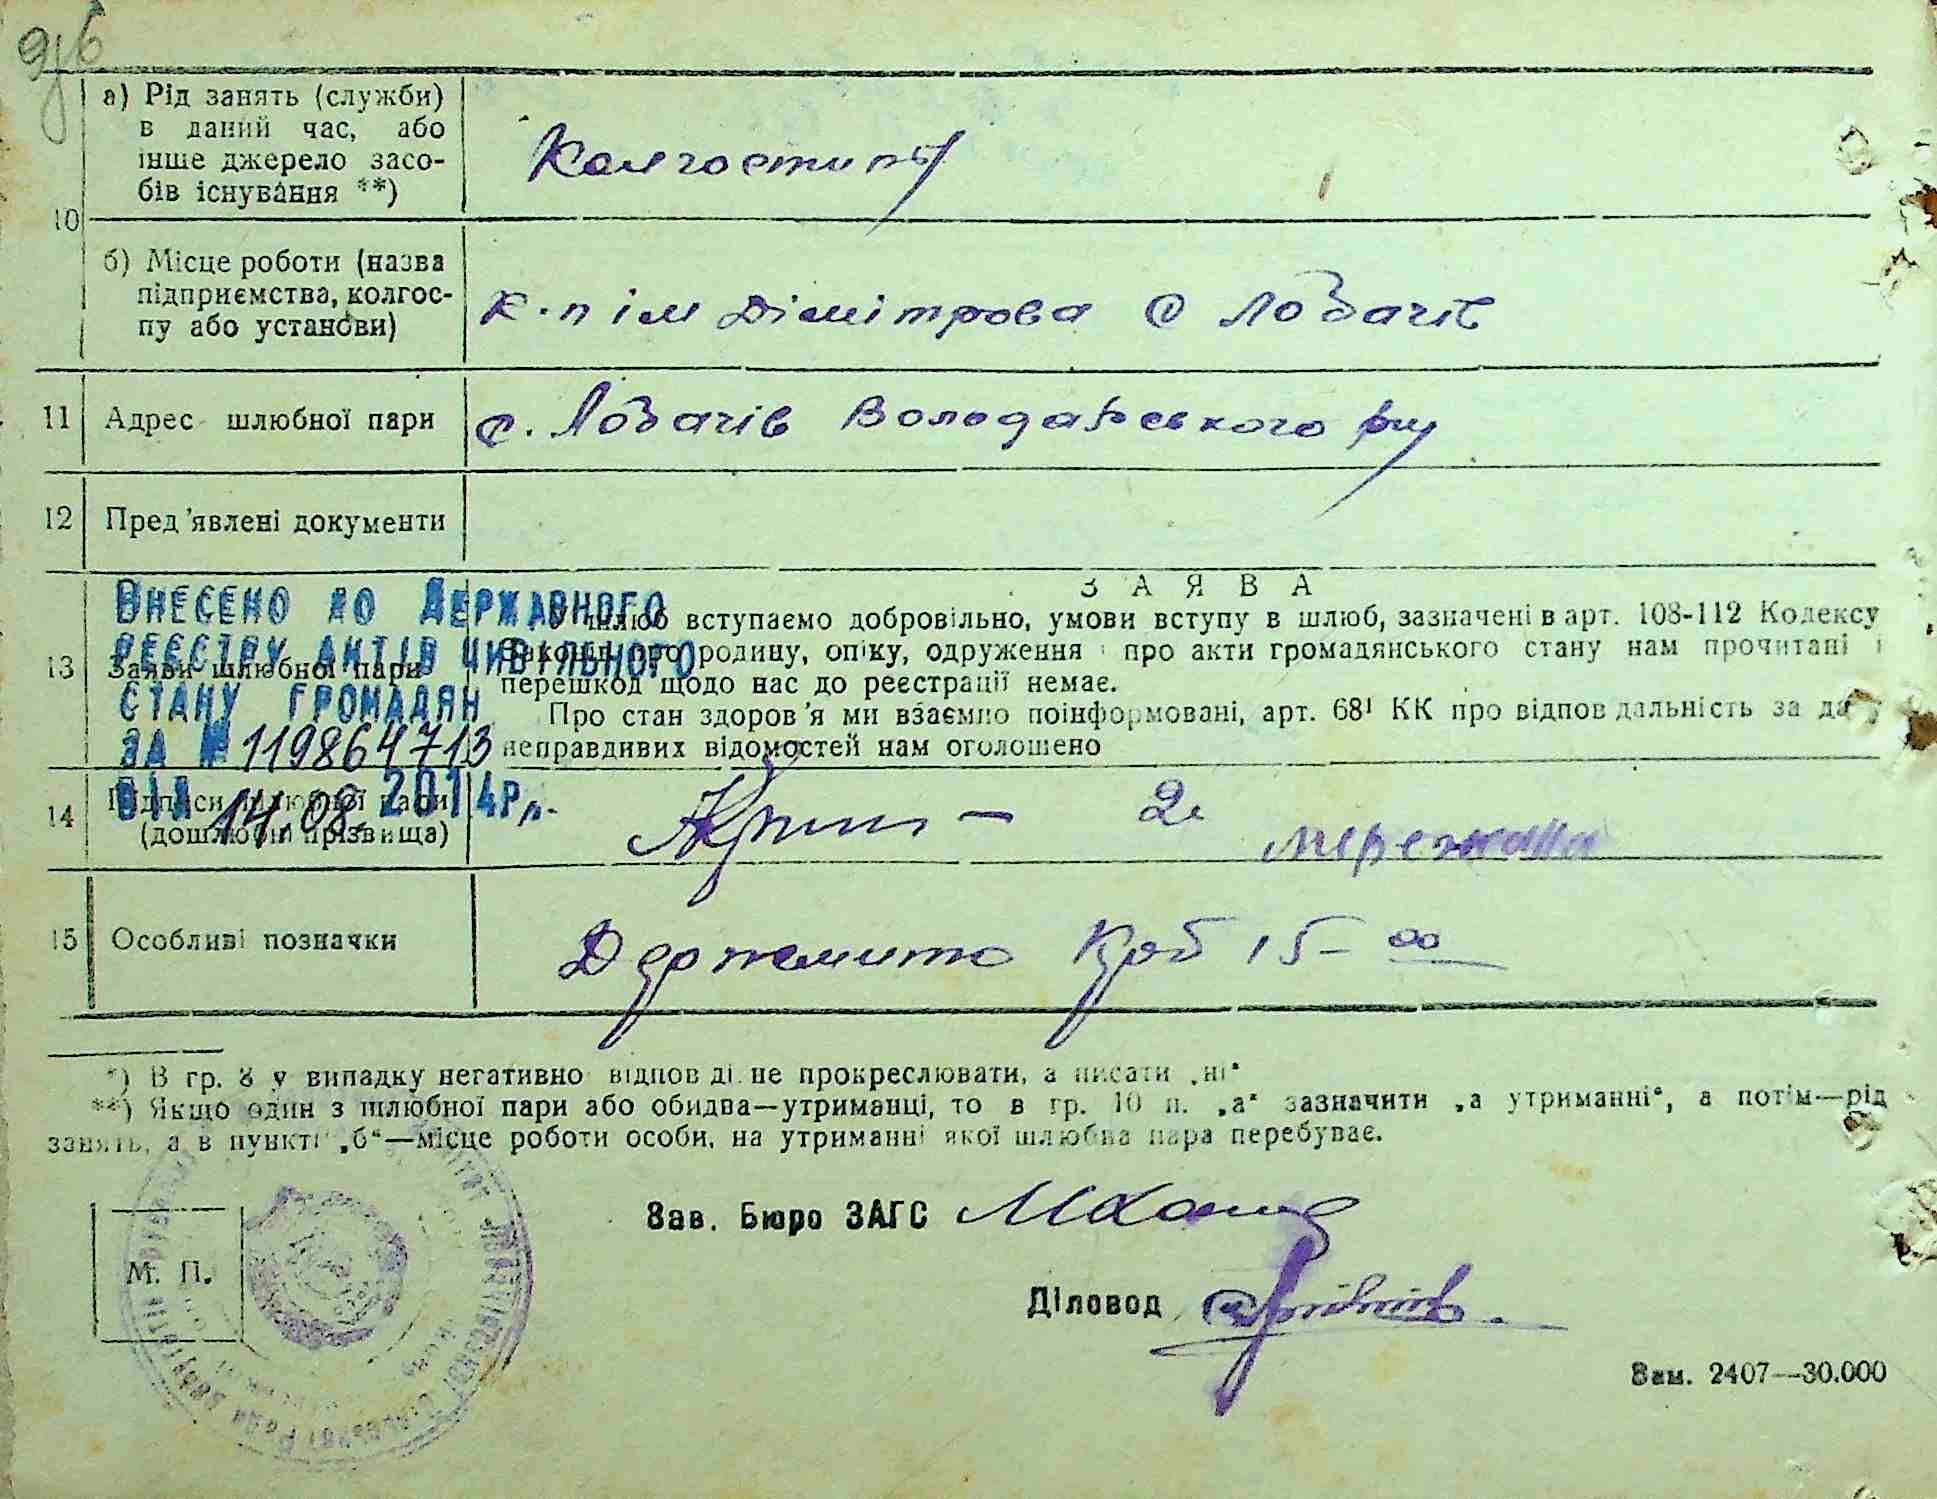 а) Рід занять (служби)
в даний час, або
інше джерело засо-
бів існування **)
Колгоспник
10
б) Місце роботи (назва
підприємства, колгос-
пу або установи)
к-п ім Дімітрова с Лобачів
11 Адрес шлюбної пари
с. Лобачів Володарського р-ну
12 Пред'явлені документи
ЗАЯВА
13 Заяви шлюбної пари
шлюб вступаємо добровільно, умови вступу в шлюб, зазначені в арт. 108-112 Кодексу
законів про родину, опіку, одруження і про акти громадянського стану нам прочитані і
перешкод щодо нас до реєстрації немає.
Про стан здоров'я ми взаємно поінформовані, арт. 68¹ КК про відповідальність за дачу
неправдивих відомостей нам оголошено
Внесено до Державного
реєстру актів цивільного
стану громадян
за № 119864713
від 14.08.2014р.
14 Підписи шлюбної пари
(дошлюбні прізвища)
2.
15 Особливі позначки
Одержано крб 15-00
*) В гр. 8 у випадку негативної відповіді не прокреслювати, а писати „ні“
**) Якщо один з шлюбної пари або обидва—утриманці, то в гр. 10 п. „а“ зазначити „а утриманні“, а потім—рід
занять, а в пункті „б“—місце роботи особи, на утриманні якої шлюбна пара перебуває.
М. П.
Зав. Бюро ЗАГС
Діловод
Зам. 2407—30.000